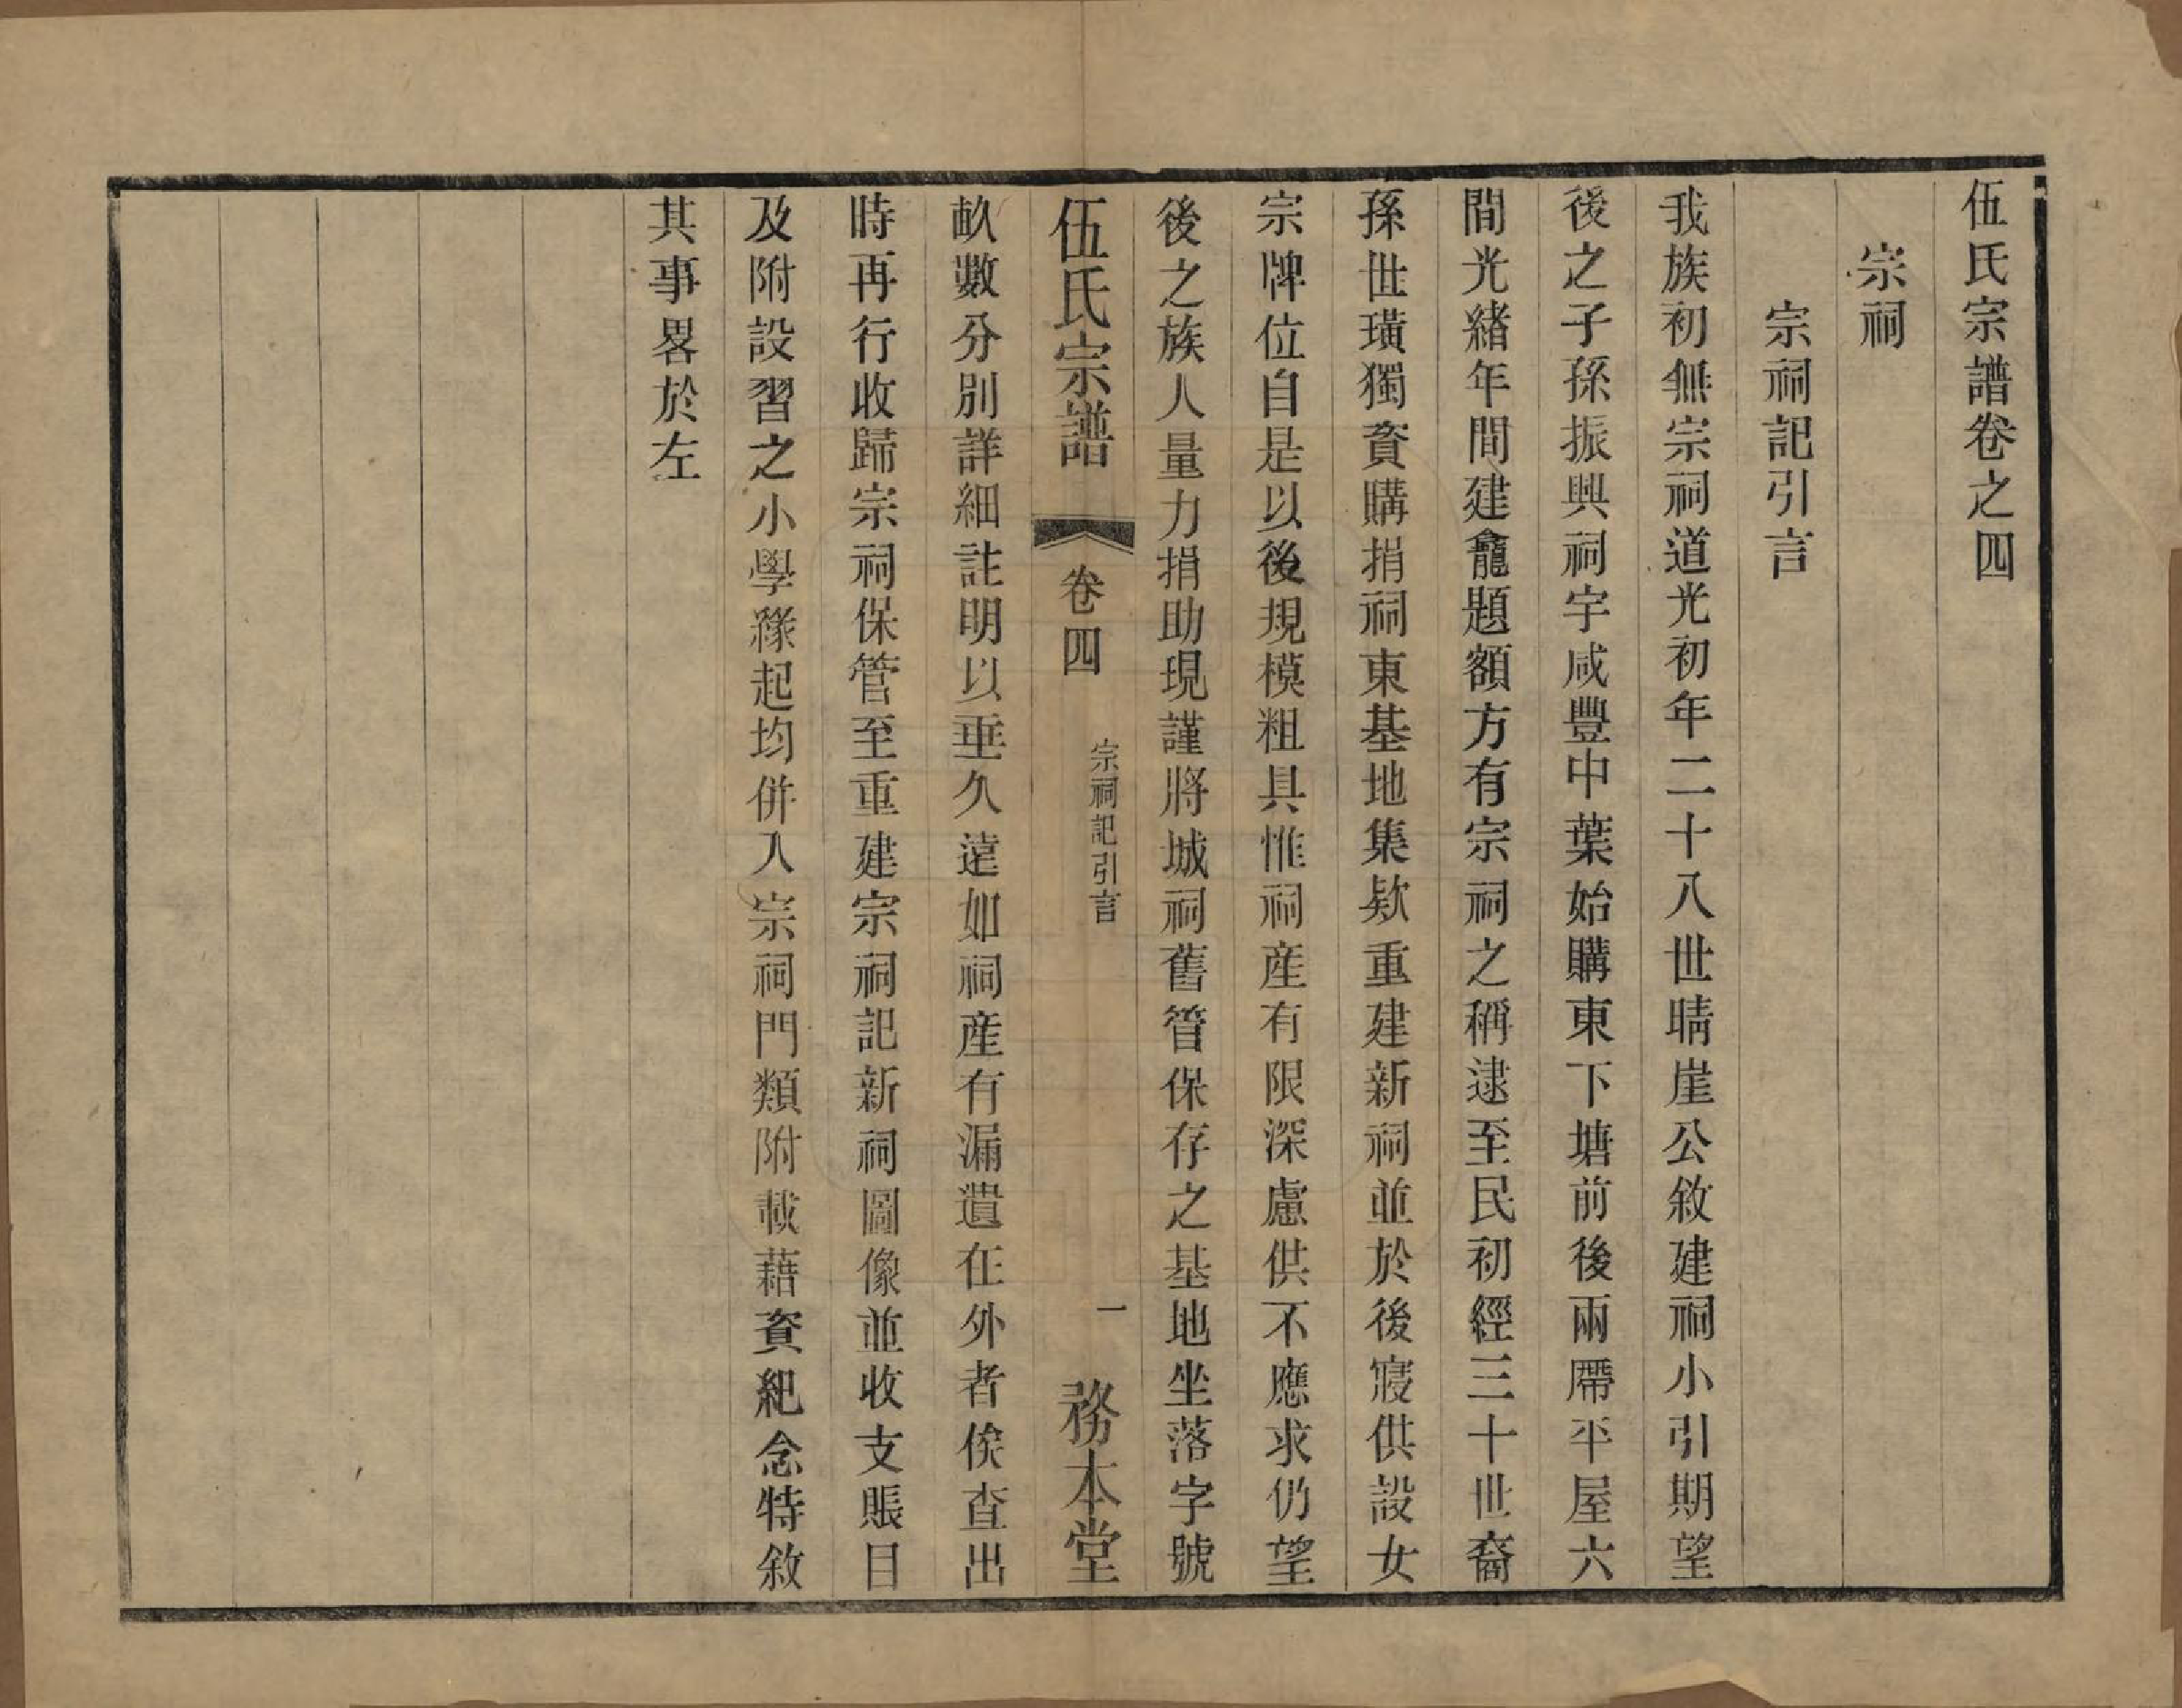 伍氏宗譜卷之四
宗祠
宗祠記引言
我族初無宗祠道光初年二十八世晴崖公敘建祠小引期望
後之子孫振興祠宇咸豐中葉始購東下塘前後兩廗平屋六
間光緒年間建龕題額方有宗祠之稱逮至民初經三十世裔
孫世璜獨資購捐祠東基地集欵重建新祠並於後寢供設女
宗牌位自是以後規模粗具惟祠産有限深慮供不應求仍望
後之族人量力捐助現謹將城祠舊管保存之基地坐落字號
伍氏宗譜 卷四 宗祠記引言 一 務本堂
畝數分別詳細註明以垂久遠如祠産有漏遺在外者俟查出
時再行收歸宗祠保管至重建宗祠記新祠圖像並收支賬目
及附設習之小學緣起均併入宗祠門類附載藉資紀念特敘
其事畧於左